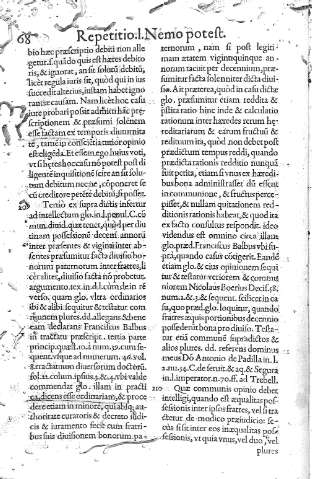 68 Repetitio.l.Nemo potest.
bio hæc præscriptio debiti non alle
getur. s. quādo quis est hæres debito
ris, & ignorat, an sit solutū debitū,
licet regula iuris sit, quòd qui in ius
succedit alterius, iustam habet igno
rantiæ causam. Nam licèt hoc casu
iure probari possit admitti hāc præ
scriptionem, & præsumi solēnem
esse factam ex temporis diuturnita
te, tamē in conscientia tutior opinio
est eligēda. Et in
ut si hæres hoc casu nō potest post di
ligentē inquisitionē scire an sit solu
tum debitum nec ne, cōponere se
cū creditore præstet debitū, si posset.
Tertiò ex supra dictis infertur
ad intellectum glo. in l. C. cō
mun. diuid. quæ tenet, quòd per diu
tinam possessionē decem annorū
inter præsentes & viginti inter ab-
sentes præsumitur facta diuisio bo-
norum paternorum inter fratres, li
cèt aliter, diuisio facta nō probetur.
argumento. tex. in. d. l. cùm de in rē
verso. quam glo. vltra ordinarios
ibi & alibi sequitur & testatur com
munem plures. dd. allegans & dene
eam declarans Franciscus Balbus
in tractatu præscript. tertia parte
princip. quæst. 10. 4. num. 39. cum se-
quent. vsque ad numerum. 46. vol.
8. tractatuum diuersorum doctorū.
fol. in. colum. ipsius. 3. & 4. vbi valde
commendat glo. illam in practi
ca, dicens esse ordinariam, & proce
dere etiam in minore, quia absq; au
thoritate curatoris & decreto iudi
cis & iuramento fecit cum fratri
bus suis diuisionem bonorum pa-
ternorum, nam si post legiti
mam ætatem vigintiquinque an-
norum tacuit per decennium, præ-
sumitur facta solenniter dicta diui-
sio. Ait præterea, quòd in casu dictæ
glo. præsumitur etiam reddita &
iusta ratio hinc inde & calculatio
rationum inter hæredes rerum hę-
reditariarum & earum fructuū &
reddituum ita, quòd non debet post
prædictum tempus reddi, quando
prædicta rationis redditio nunquā
fuit petita, etiam si vnus ex hæredi-
bus bona administrasset dū essent
in communione, & fructus percę-
pisset, & nullam quitationem reddi-
ditionis rationis habeat, & quòd ita
ex facto consultus respondit. ideo
videndus est omnino circa illam
glo. præd. Franciscus Balbus vbi su-
prà, quando casus cōtigerit. Eandē
etiam glo. & eius opinionem sequi
tur & testatur veriorem & commu
niorem Nicolaus Boerius Decis. 58.
num. 2. & 3. & sequent. scilicet in ca
su, quo præd. glo. loquitur, quando
fratres æquis portionibus decennio
possederint bona pro diuiso. Testa-
tur etiā communē supradictos &
alios plures. dd. referens dominus
meus Dō Antonio de Padilla in. l.
2. nu. 54. C. de seruit. & aq. & Segura
in. l. imperator. n. 70. ff. ad Trebell.
110 Quæ communis opinio debet
intelligi, quando est æqualitas pos-
sessionis inter ipsos fratres, vel si tra
ctetur de modico præiudicio: se-
cus si inter eos inæqualitas pos-
sessionis, vt quia vnus, vel duo vel
plures